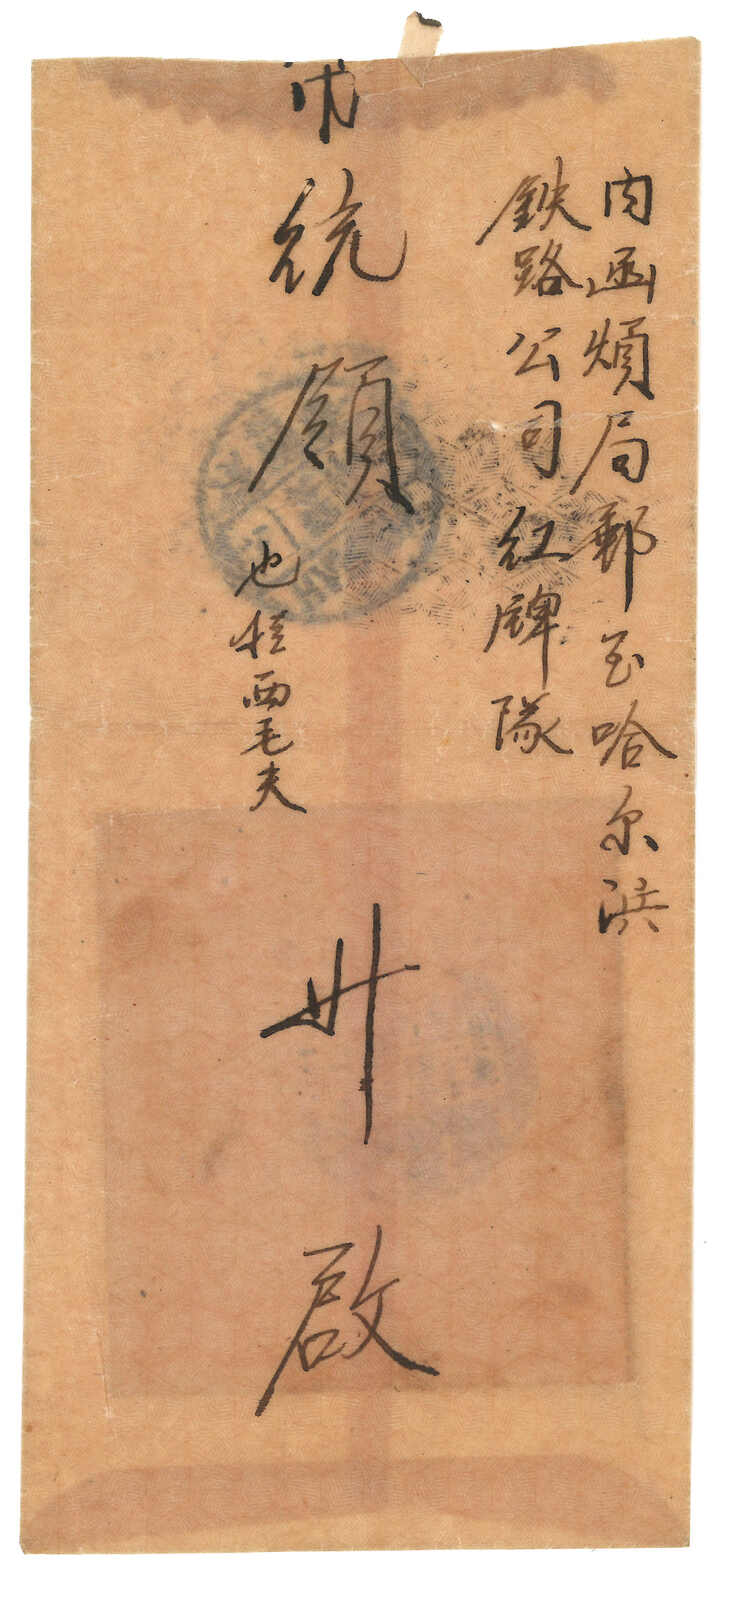 内函煩局郵至哈尔浜
鉄路公司红牌隊
統領
也西毛夫
升啟